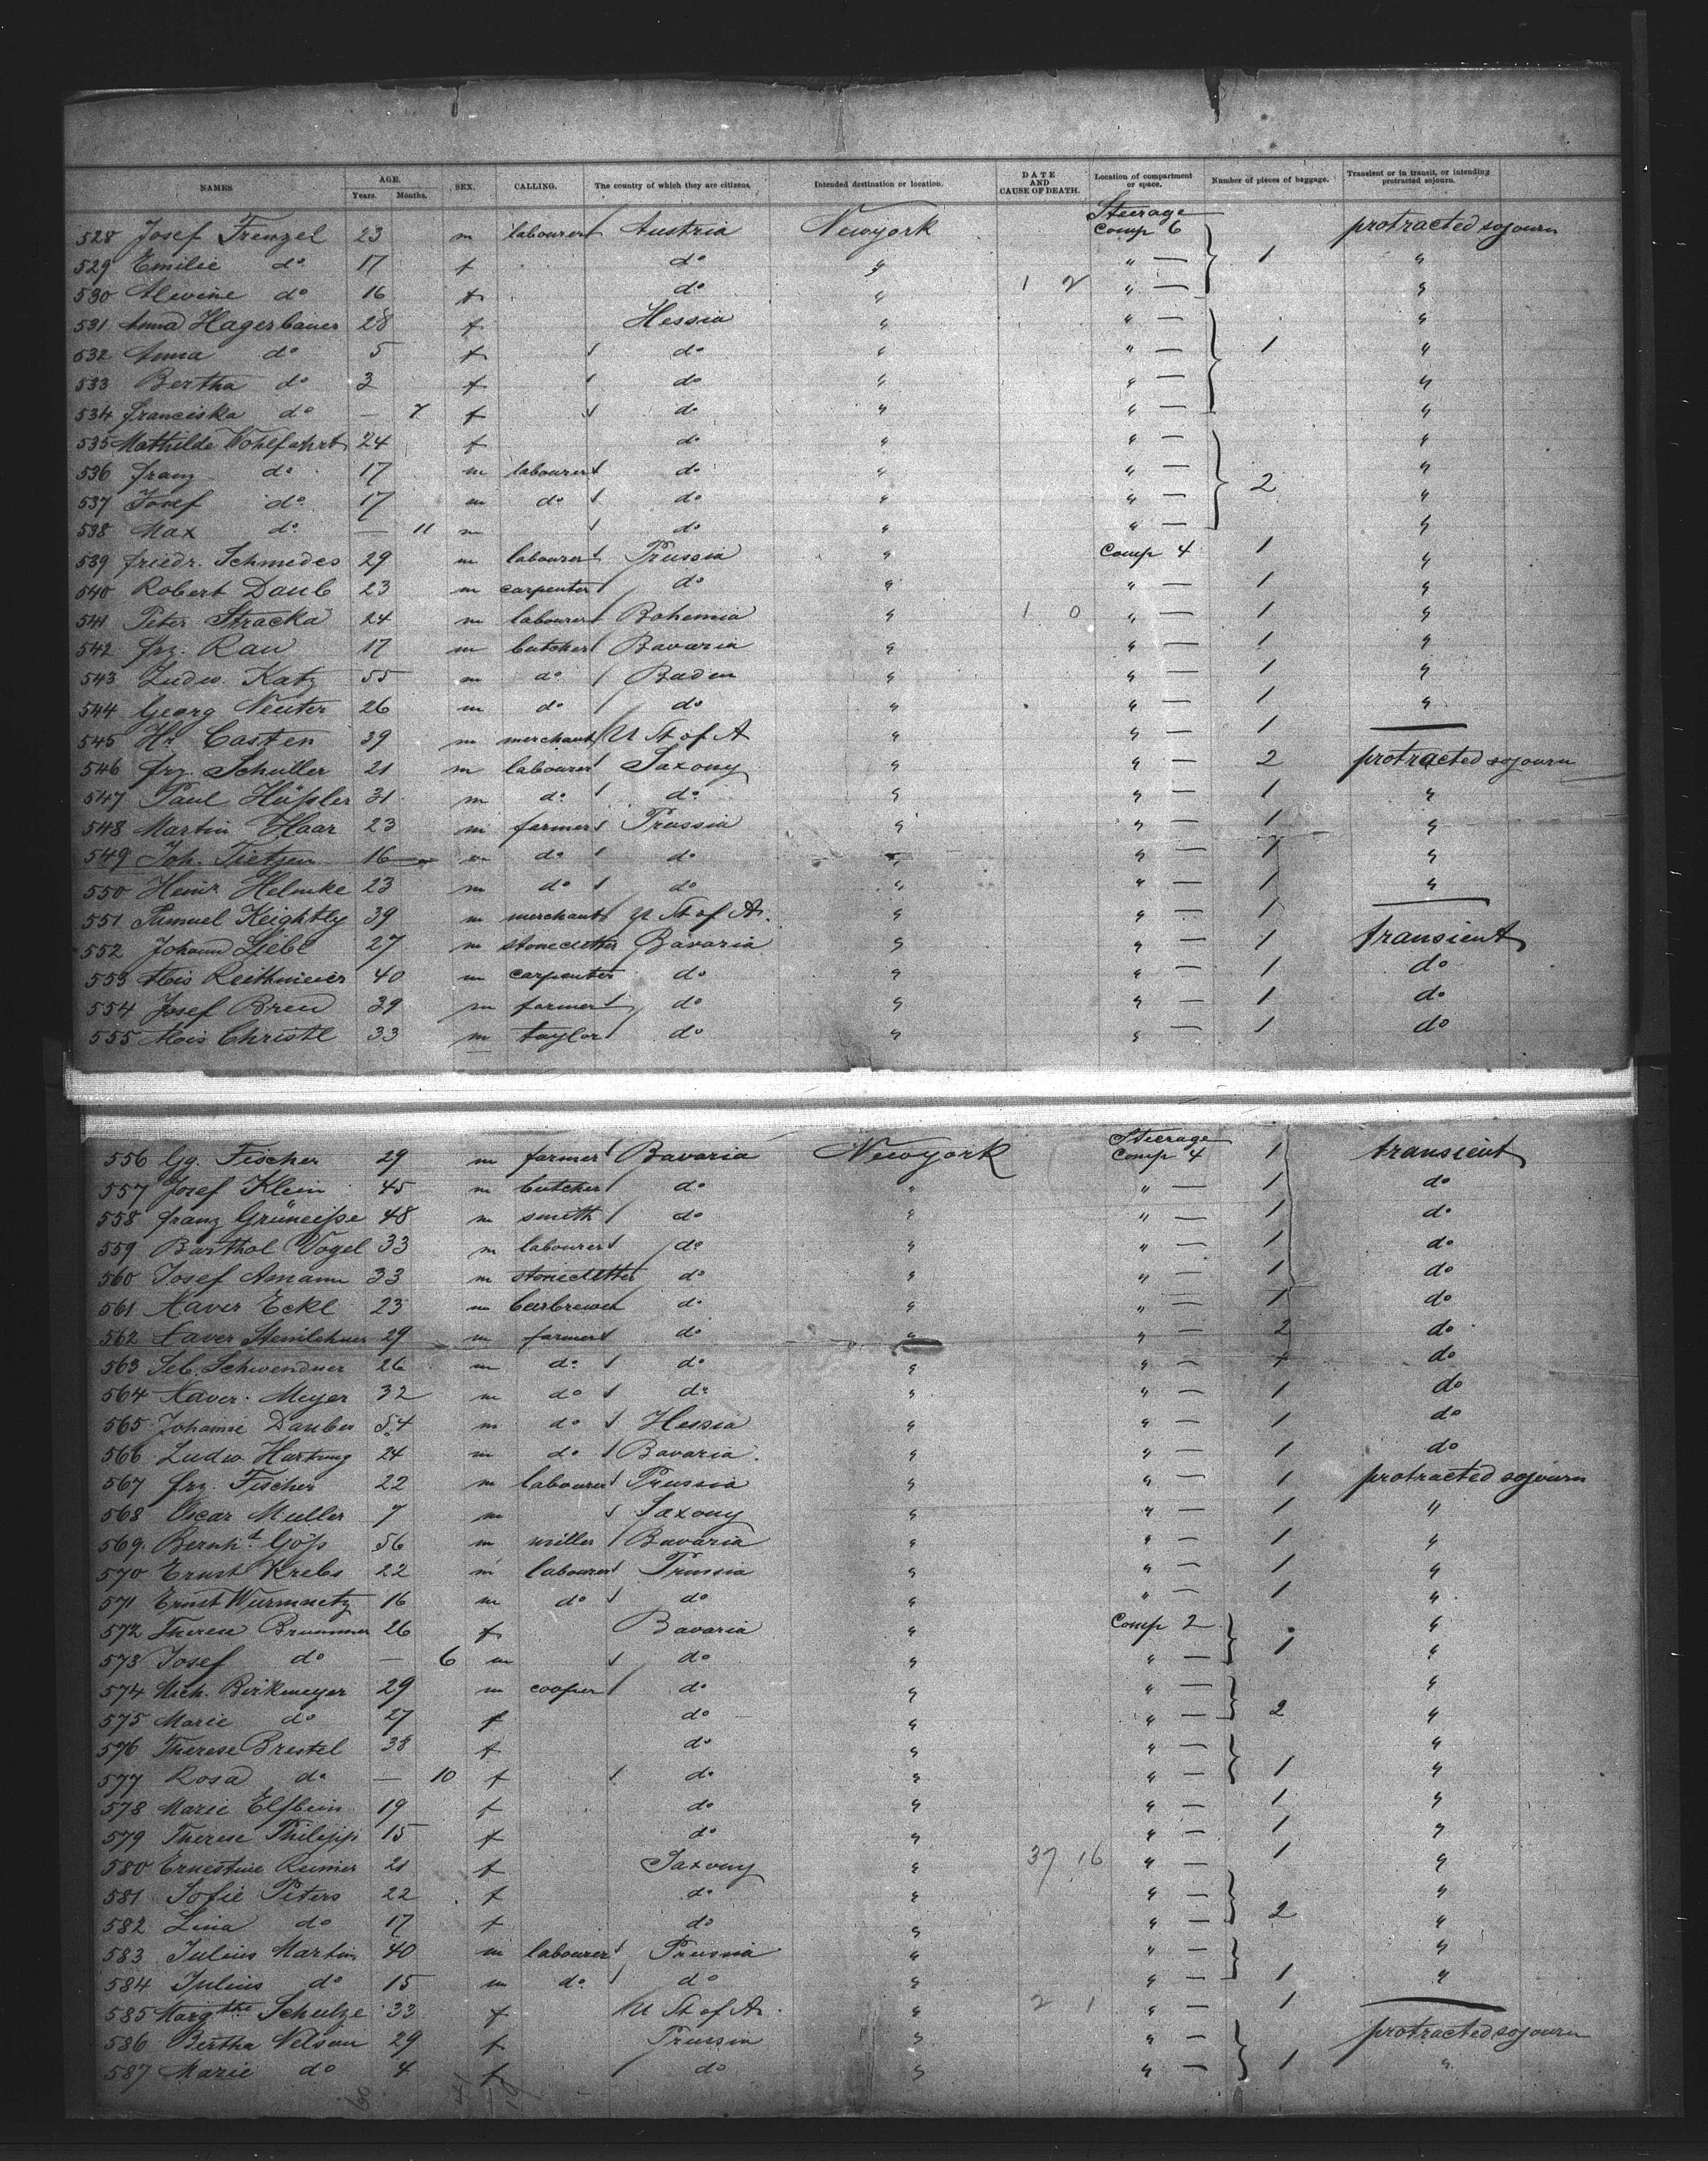 NAMES AGE. Years. Months. SEX. CALLING. The country of which they are citizens. Intended destination or location. DATE AND CAUSE OF DEATH. Location of compartment or space. Number of pieces of baggage. Transient or in transit, or intending protracted sojourn.
528 Josef Frenzel 23 m labourer Austria Newyork Steerage Comp 6 protracted sojourn
529 Emilie do 17 f do " " — 1 "
530 Alwine do 16 f do " 1 2 " — "
531 Anna Hagerbauer 28 f Hessia " " — "
532 Anna do 5 f do " " — 1 "
533 Bertha do 3 f do " " — "
534 Franciska do — 7 f do " " — "
535 Mathilde Wohlfahrt 24 f do " " — "
536 Franz do 17 m labourer do " " — "
537 Josef do 17 m do do " " — 2 "
538 Max do — 11 m do " " — "
539 Friedr. Schmedes 29 m labourer Prussia " Comp 4 1 "
540 Robert Daub 23 m carpenter do " " — 1 "
541 Peter Stracka 24 m labourer Bohemia " 1 0 " — 1 "
542 Frz. Rau 17 m butcher Bavaria " " — 1 "
543 Ludw. Katz 55 m do Baden " " — 1 "
544 Georg Neuter 26 m do do " " — 1 "
545 Hr Casten 39 m merchant U St of A " " — 1 —
546 Frz. Schuller 21 m labourer Saxony " " — 2 protracted sojourn
547 Paul Häßler 31 m do do " " — 1 "
548 Martin Haar 23 m farmer Prussia " " — 1 "
549 Joh. Tietjen 16 m do do " " — 1 "
550 Heinr Helmke 23 m do do " " — 1 "
551 Samuel Keightly 39 m merchant U St of A. " " — 1 —
552 Johann Liebl 27 m stonecutter Bavaria " " — 1 transient
553 Alois Reithmeier 40 m carpenter do " " — 1 do
554 Josef Breu 39 m farmer do " " — 1 do
555 Alois Christl 33 m taylor do " " — 1 do
556 Gg. Fischer 29 m farmer Bavaria Newyork Steerage Comp 4 1 transient
557 Josef Klein 45 m butcher do " " — 1 do
558 Franz Grüneiße 48 m smith do " " — 1 do
559 Barthol Vogel 33 m labourer do " " — 1 do
560 Josef Amann 33 m stonecutter do " " — 1 do
561 Xaver Eckl 23 m beerbrewer do " " — 1 do
562 Xaver 29 m farmer do " " — 2 do
563 Seb. Schwendner 26 m do do " " — 1 do
564 Xaver Meyer 32 m do do " " — 1 do
565 Johann Dauber 54 m do Hessia " " — 1 do
566 Ludw Hartung 24 m do Bavaria " " — 1 do
567 Frz. Fischer 22 m labourer Prussia " " — 1 protracted sojourn
568 Oscar Muller 7 m Saxony " " — 1 "
569. Bernht Göß 56 m miller Bavaria " " — 1 "
570 Ernst Krebs 22 m labourer Prussia " " — 1 "
571 Ernst 16 m do do " " — 1 "
572 Therese Brummer 26 f Bavaria " Comp 2 "
573 Josef do — 6 m do " " — 1 "
574 Mich. Birkmeyer 29 m cooper do " " — "
575 Marie do 27 f do " " — 2 "
576 Therese Brestel 38 f do " " — "
577 Rosa do — 10 f do " " — 1 "
578 Marie Elfbein 19 f do " " — 1 "
579 Therese Philipp 15 f do " " — 1 "
580 Ernestine Reimer 21 f Saxony " 37 16 " — 1 "
581 Sofie Peters 22 f do " " — "
582 Lina do 17 f do " " — 2 "
583 Julius Martin 40 m labourer Prussia " " — "
584 Julius do 15 m do do " " — 1 "
585 Margthe Schultze 33 f U St of A. " 2 1 " — 1 —
586 Bertha Nelson 29 f Prussia " " — protracted sojourn
587 Marie do 4 f do " " — 1 "